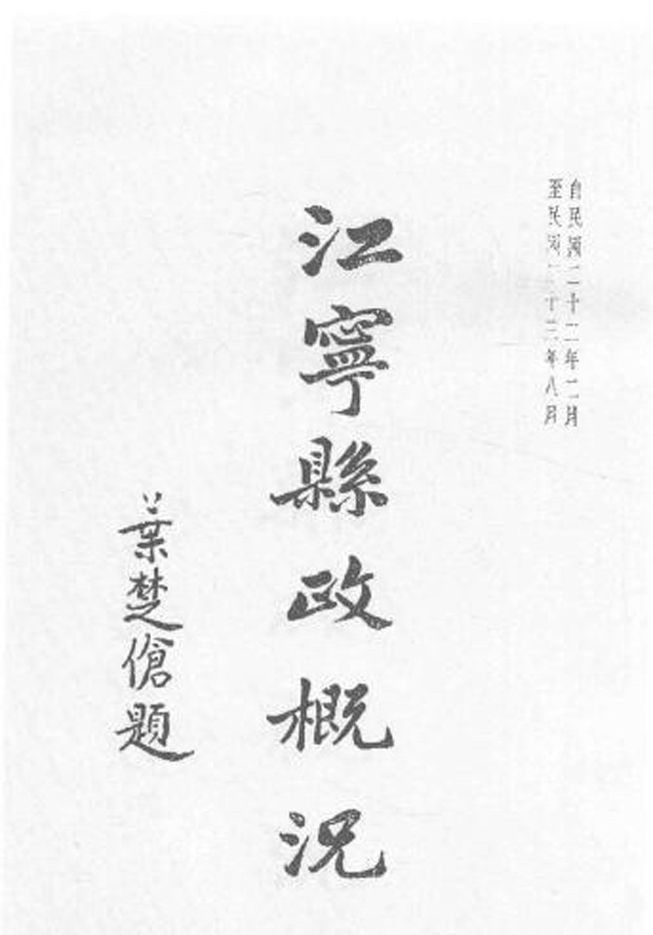 自民國二十二年二月
至民國二十三年八月
江寧縣政概況
葉楚傖題